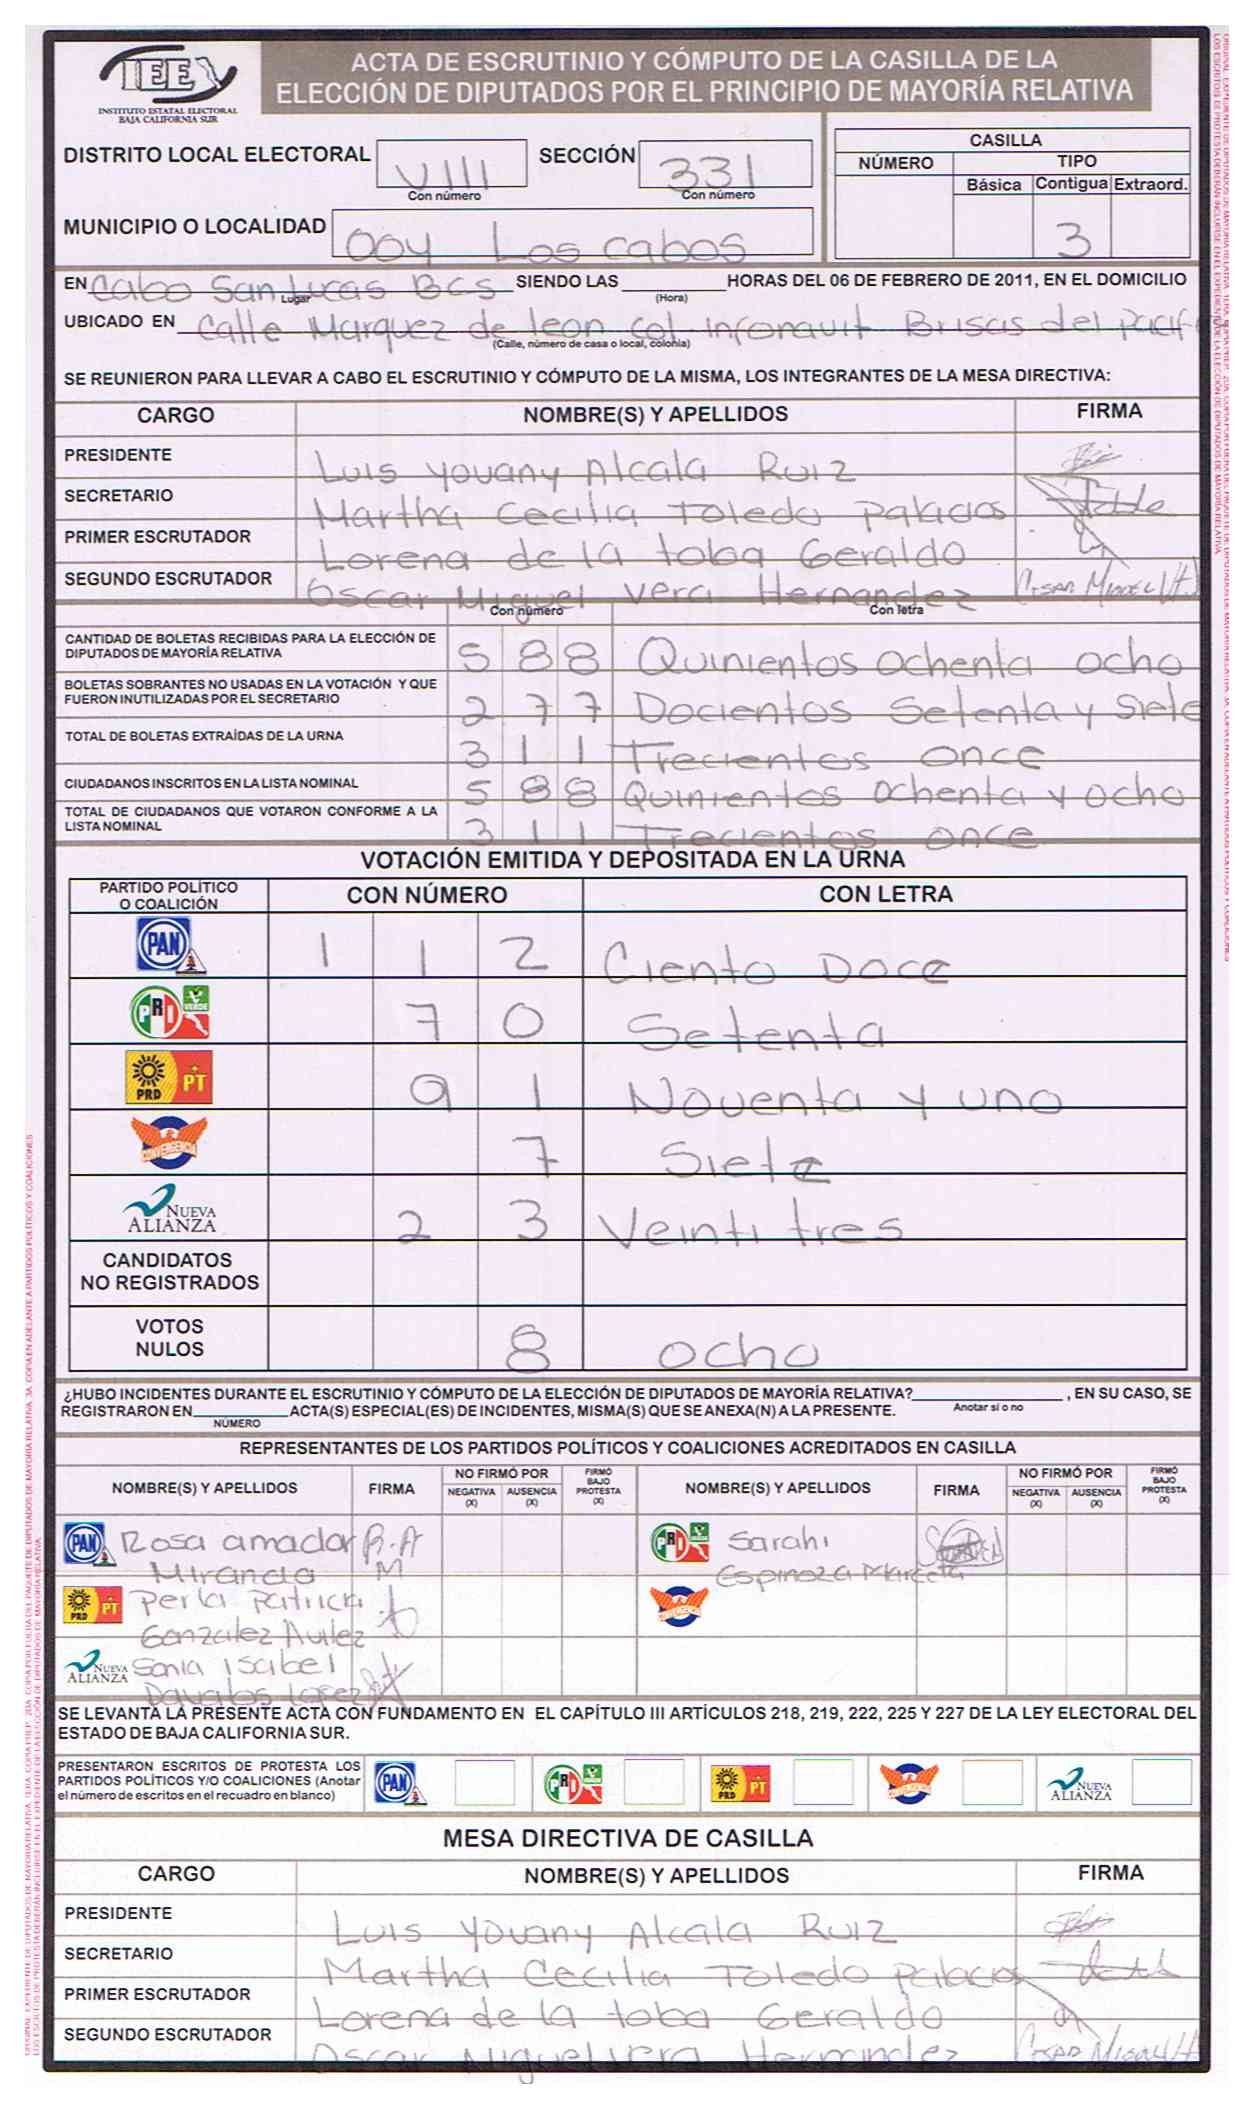 IEE
INSTITUTO ESTATAL ELECTORAL
BAJA CALIFORNIA SUR
ACTA DE ESCRUTINIO Y CÓMPUTO DE LA CASILLA DE LA
ELECCIÓN DE DIPUTADOS POR EL PRINCIPIO DE MAYORÍA RELATIVA
DISTRITO LOCAL ELECTORAL VIII SECCIÓN 331
Con número Con número
CASILLA
NÚMERO TIPO
Básica Contigua Extraord.
3
MUNICIPIO O LOCALIDAD 004 Los Cabos
EN Cabo San Lucas BCS SIENDO LAS HORAS DEL 06 DE FEBRERO DE 2011, EN EL DOMICILIO
Lugar (Hora)
UBICADO EN Calle Marquez de leon col. infonavit Brisas del Pacif
(Calle, número de casa o local, colonia)
SE REUNIERON PARA LLEVAR A CABO EL ESCRUTINIO Y CÓMPUTO DE LA MISMA, LOS INTEGRANTES DE LA MESA DIRECTIVA:
CARGO NOMBRE(S) Y APELLIDOS FIRMA
PRESIDENTE Luis Yovany Alcala Ruiz
SECRETARIO Martha Cecilia Toledo Palacios
PRIMER ESCRUTADOR Lorena de la toba Geraldo
SEGUNDO ESCRUTADOR Oscar Miguel Vera Hernandez
Con número Con letra
CANTIDAD DE BOLETAS RECIBIDAS PARA LA ELECCIÓN DE
DIPUTADOS DE MAYORÍA RELATIVA 5 8 8 Quinientos ochenta ocho
BOLETAS SOBRANTES NO USADAS EN LA VOTACIÓN Y QUE
FUERON INUTILIZADAS POR EL SECRETARIO 2 7 7 Docientos Setenta y Siete
TOTAL DE BOLETAS EXTRAÍDAS DE LA URNA 3 1 1 Trecientos once
CIUDADANOS INSCRITOS EN LA LISTA NOMINAL 5 8 8 Quinientos ochenta y ocho
TOTAL DE CIUDADANOS QUE VOTARON CONFORME A LA
LISTA NOMINAL 3 1 1 Trecientos once
VOTACIÓN EMITIDA Y DEPOSITADA EN LA URNA
PARTIDO POLÍTICO
O COALICIÓN CON NÚMERO CON LETRA
PAN 1 1 2 Ciento Doce
PRI VERDE 7 0 Setenta
PRD PT 9 1 Noventa y uno
CONVERGENCIA 7 Siete
NUEVA ALIANZA 2 3 Veinti tres
CANDIDATOS
NO REGISTRADOS
VOTOS
NULOS 8 ocho
¿HUBO INCIDENTES DURANTE EL ESCRUTINIO Y CÓMPUTO DE LA ELECCIÓN DE DIPUTADOS DE MAYORÍA RELATIVA? , EN SU CASO, SE
Anotar sí o no
REGISTRARON EN ACTA(S) ESPECIAL(ES) DE INCIDENTES, MISMA(S) QUE SE ANEXA(N) A LA PRESENTE.
NÚMERO
REPRESENTANTES DE LOS PARTIDOS POLÍTICOS Y COALICIONES ACREDITADOS EN CASILLA
NOMBRE(S) Y APELLIDOS FIRMA NO FIRMÓ POR NEGATIVA (X) AUSENCIA (X) FIRMÓ BAJO PROTESTA (X) NOMBRE(S) Y APELLIDOS FIRMA NO FIRMÓ POR NEGATIVA (X) AUSENCIA (X) FIRMÓ BAJO PROTESTA (X)
PAN Rosa amador R.A PRI VERDE Sarahi
Miranda M Espinoza
PRD PT Perla Patricia CONVERGENCIA
Gonzalez Nuñez
NUEVA ALIANZA Sonia Isabel
Davalos Lopez
SE LEVANTA LA PRESENTE ACTA CON FUNDAMENTO EN EL CAPÍTULO III ARTÍCULOS 218, 219, 222, 225 Y 227 DE LA LEY ELECTORAL DEL
ESTADO DE BAJA CALIFORNIA SUR.
PRESENTARON ESCRITOS DE PROTESTA LOS
PARTIDOS POLÍTICOS Y/O COALICIONES (Anotar
el número de escritos en el recuadro en blanco)
PAN PRI VERDE PRD PT CONVERGENCIA NUEVA ALIANZA
MESA DIRECTIVA DE CASILLA
CARGO NOMBRE(S) Y APELLIDOS FIRMA
PRESIDENTE Luis Yovany Alcala Ruiz
SECRETARIO Martha Cecilia Toledo Palacios
PRIMER ESCRUTADOR Lorena de la toba Geraldo
SEGUNDO ESCRUTADOR Oscar Miguel Vera Hernandez